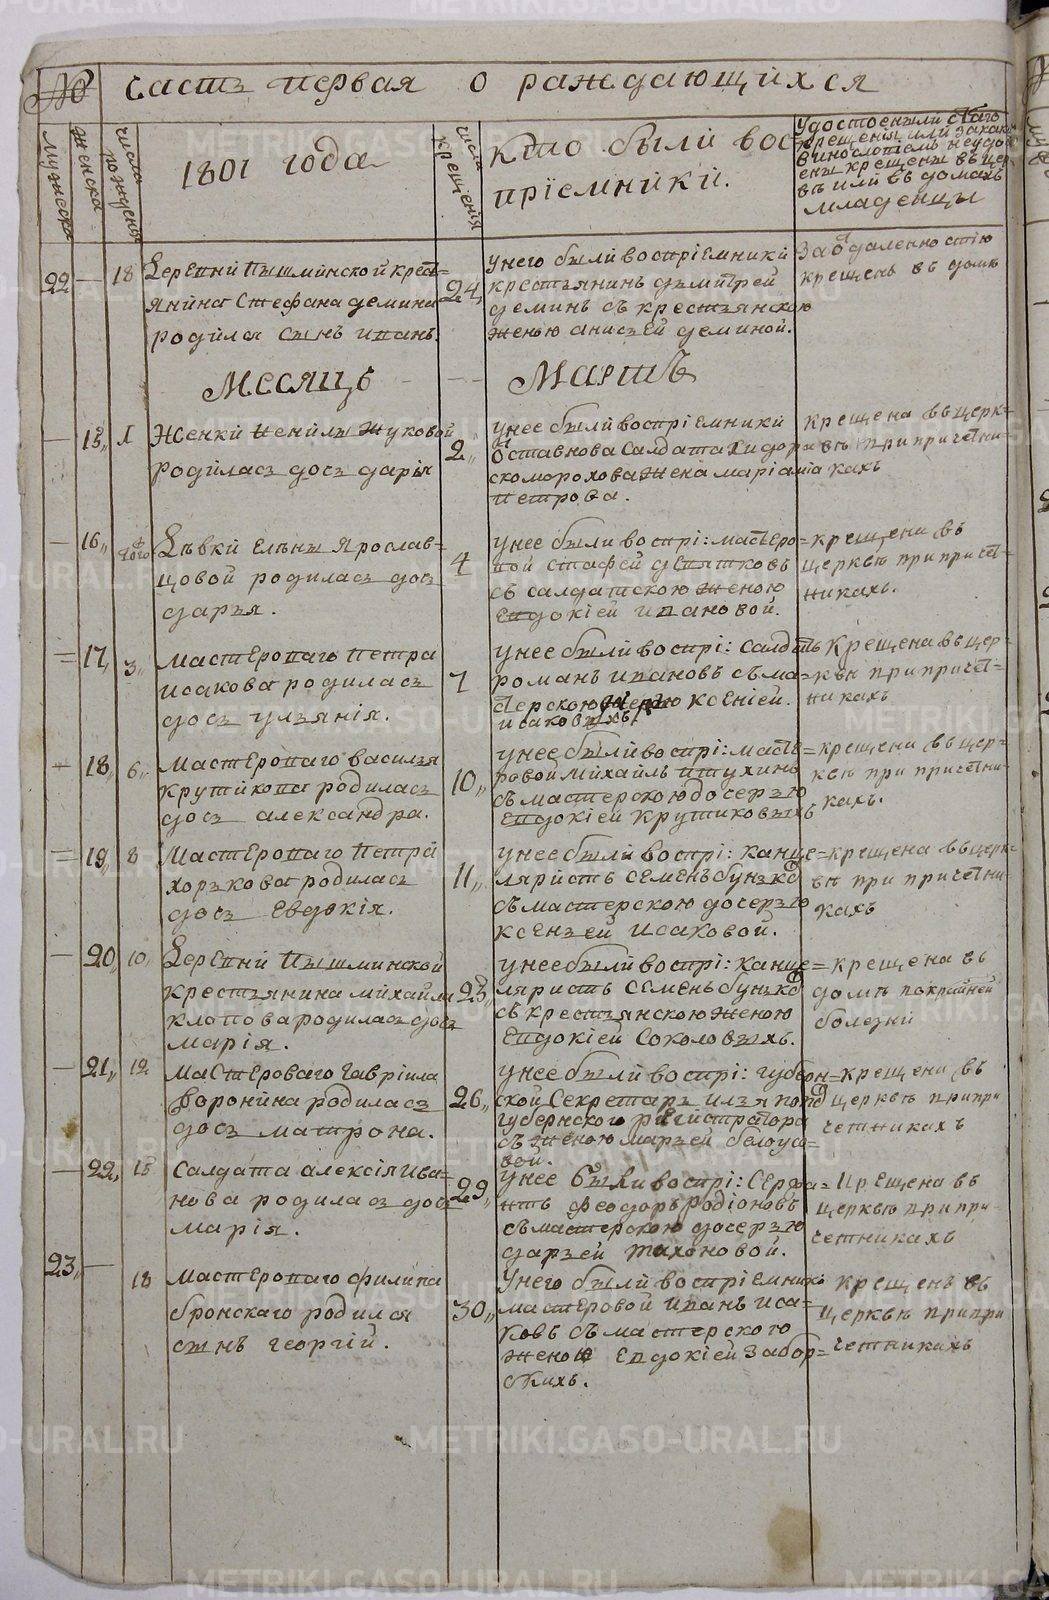 № Часть первая о раждающихся
мужеска
женска
числа рожденія
1801 года
числа крещенія
кто были вос=
пріемники.
Удостоены ли с~таго
крещенія или закаки
младенцы
22 — 18 деревни Пышминской кресть=
янина Стефана демина
родился сынъ иванъ.
24 унего были воспріемники
крестьянинъ димитрей
деминъ съ крестьянскою
женою анисьей деминой.
За отдаленностію
крещенъ въ доме
Месяцъ -- Мартъ
— 15 1 Женки Ненилы Жуковой
родилась дочь дарья
2 унее были воспріемники
отставнова Салдата Сидора
скоморохова жена маріамна
петрова.
крещена въ церк=
вѣ при причетни=
кахъ
— 16 дѣвки елены Ярослав=
цовой родилась дочь
дарья.
4 унее были воспрі: мастеро=
вой
съ салдатскою женою
евдокіей ивановой.
крещена въ
церквѣ при причет=
никахъ.
= 17 3 Мастероваго петра
исакова родилась
дочь ульянія.
7 унее были воспрі: салдатъ
романъ ивановъ съ ма=
стерскою дочерью ксеніей.
исаковыхъ
Крещена въ цер=
квѣ при причет=
никахъ
— 18 6 мастероваго василья
крутикова родилась
дочь александра.
10 унее были воспрі: масте=
ровой михайлъ птухинъ
съ мастерскою дочерью
евдокіей крутиковыхъ
крещена въ цер=
квѣ при причетни=
кахъ.
= 19 8 Мастероваго петра
хорькова родилась
дочь евдокія.
11 унее были воспрі: канце=
ляристъ семенъ бунько
съ мастерскою дочерью
ксеньей исаковой.
крещена въ церк=
вѣ при причетни=
кахъ
— 20 10 деревни пышминской
крестьянина михайла
клопова родилась дочь
марія.
23 унее были воспрі: канце=
ляристъ семенъ бунько
съ крестьянскою женою
евдокіей соколовыхъ.
крещена въ
домѣ по крайней
болезни
— 21 12 мастероваго гавріила
воронина родилась
дочь матрона.
26 унее были воспрі: губерн=
ской секретарь илья поповъ
губернского регистратора
съ женою марьей белоусо=
вой.
крещена въ
церквѣ при при
четникахъ
— 22 15 Салдата алексія ива=
нова родилась дочь
марія.
29 унее были воспрі: сержа=
нтъ феодоръ родіоновъ
съ мастерскою дочерью
дарьей тихоновой.
крещена въ
церквѣ при при
четникахъ
23 — 18 Мастероваго филипа
бронскаго родился
сынъ георгій.
30 Унего были воспріемники
мастеровой иванъ иса=
ковъ съ мастерскою
женою евдокіей забор=
скихъ.
крещенъ въ
церквѣ при при
четникахъ